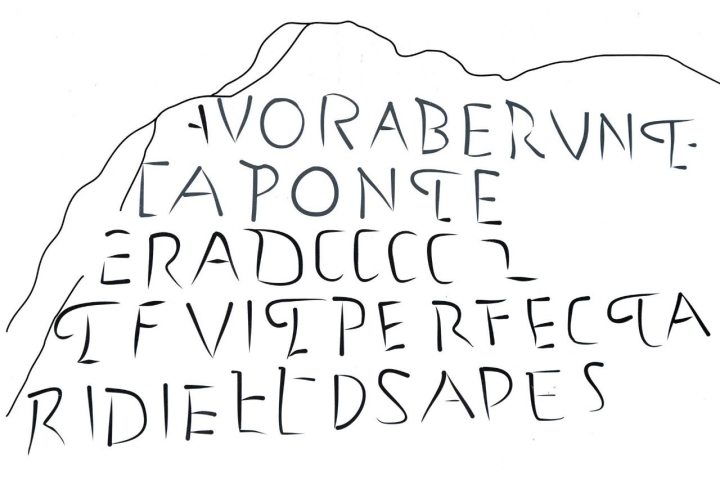 AVORABERVNT·
CAPONTE
ERADCCCC L
TFVITPERFECTA
RIDIEKLDSAPES